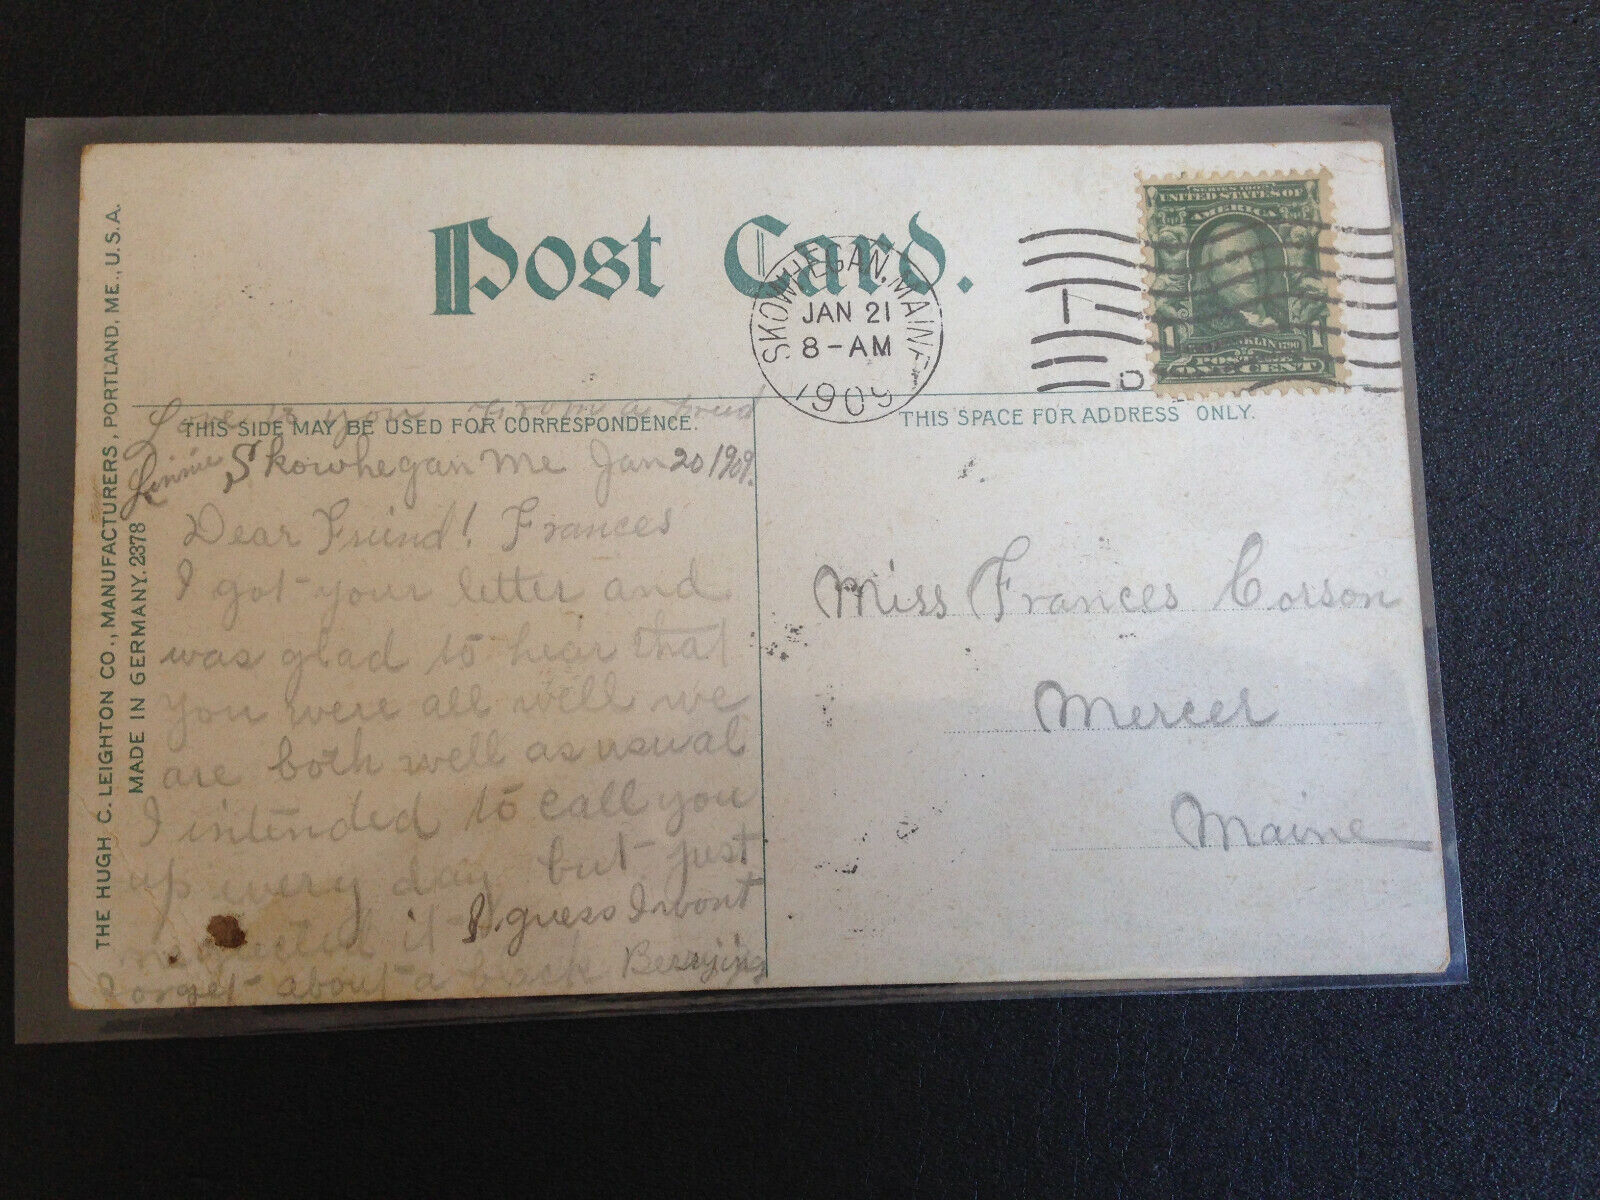 Post Card.
SKOWHEGAN, MAINE
JAN 21
8-AM
1909
SERIES 1902
UNITED STATES OF
AMERICA
1 1
FRANKLIN 1790
POSTAGE
ONE CENT
THE HUGH C. LEIGHTON CO., MANUFACTURERS, PORTLAND, ME., U.S.A.
MADE IN GERMANY. 2378
THIS SIDE MAY BE USED FOR CORRESPONDENCE.
THIS SPACE FOR ADDRESS ONLY.
Love to you From a Friend
Linnie
Skowhegan Me Jan 20 1909.
Dear Friend! Frances
I got your letter and
was glad to hear that
you were all well we
are both well as usual
I intended to call you
up every day but just
neglected it I guess I wont
Forget about a black Berrying
Miss Frances Corson
Mercer
Maine